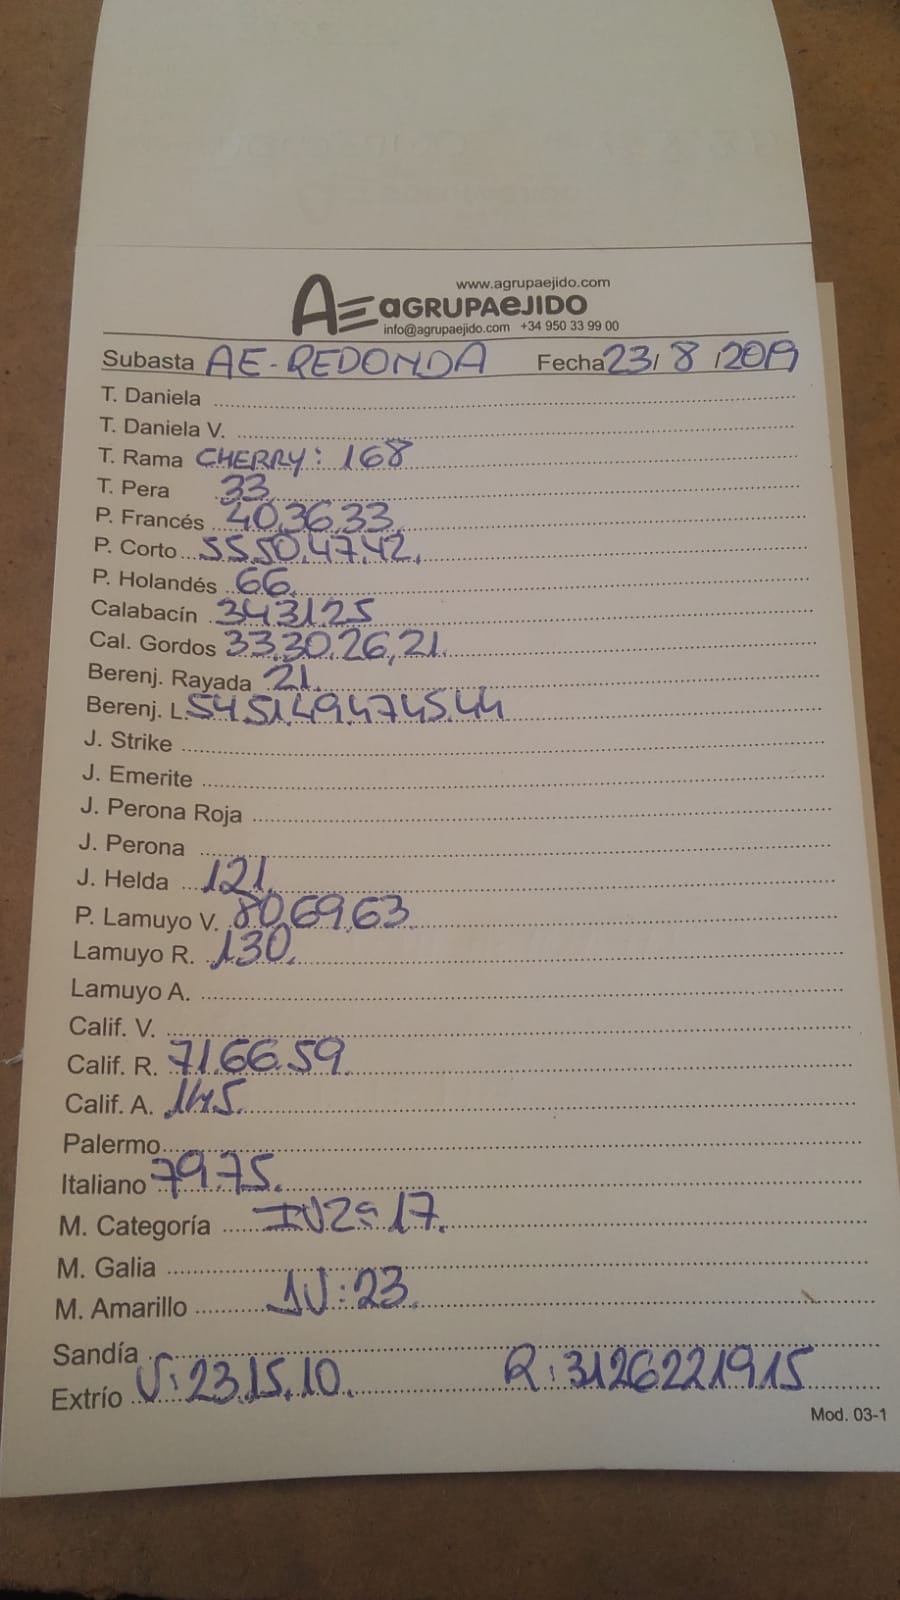 www.agrupaejido.com
AE aGRUPAeJIDO
info@agrupaejido.com +34 950 33 99 00
Subasta AE-REDONDA Fecha 23/8/2019
T. Daniela
T. Daniela V.
T. Rama CHERRY: 168
T. Pera 33
P. Francés 40,36,33.
P. Corto 55,50,47,42.
P. Holandés 66.
Calabacín 34,31,25
Cal. Gordos 33,30,26,21.
Berenj. Rayada 21.
Berenj. L. 54,51,49,47,45,44
J. Strike
J. Emerite
J. Perona Roja
J. Perona
J. Helda 121.
P. Lamuyo V. 80,69,63.
Lamuyo R. 130.
Lamuyo A.
Calif. V.
Calif. R. 71,66,59.
Calif. A. 145.
Palermo
Italiano 79,75.
M. Categoría IV2ª 17.
M. Galia
M. Amarillo 1V:23.
Sandía
Extrío V:23,15,10. R:31,26,22,19,15
Mod. 03-1